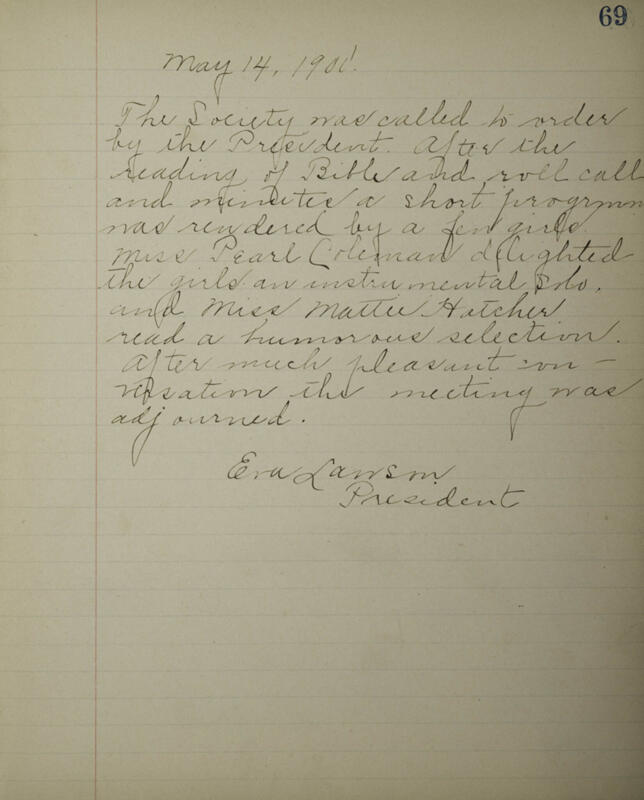 69
May 14, 1901.
The Society was called to order
by the President. After the
reading of Bible and roll call
and minutes a short program
was rendered by a few girls.
Miss Pearl Coleman delighted
the girls an instrumental solo,
and Miss Mattie Hatcher
read a humorous selection.
After much pleasant con-
versation the meeting was
adjourned.
Eva Lawson
President